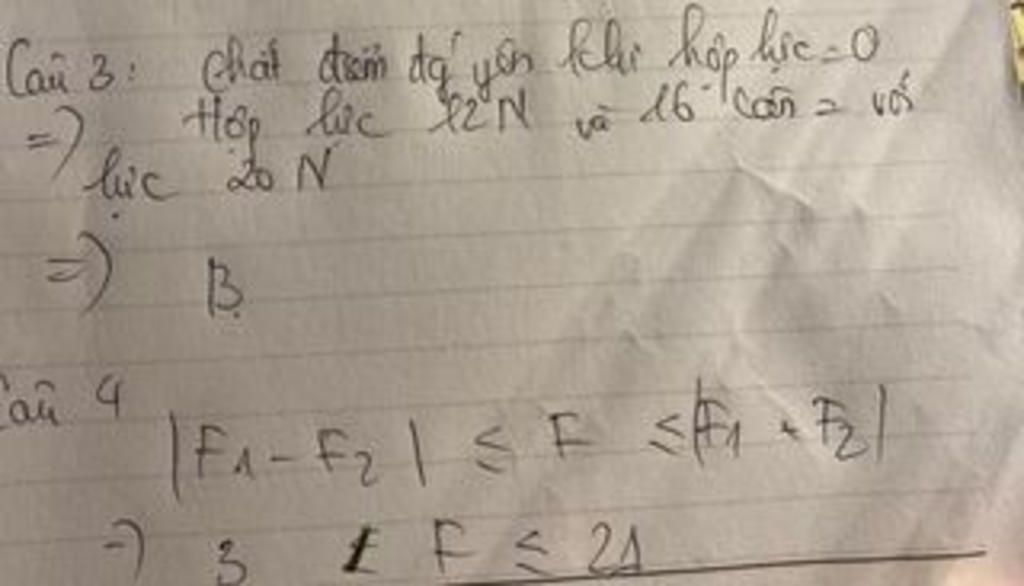 Câu 3: Chất điểm đg yên khi hợp lực = 0
=) Hợp lực 12N và 16 cân = với
lực 20 N
=) B
Câu 4
|F1 - F2| ≤ F ≤ |F1 + F2|
=) 3 ≤ F ≤ 21